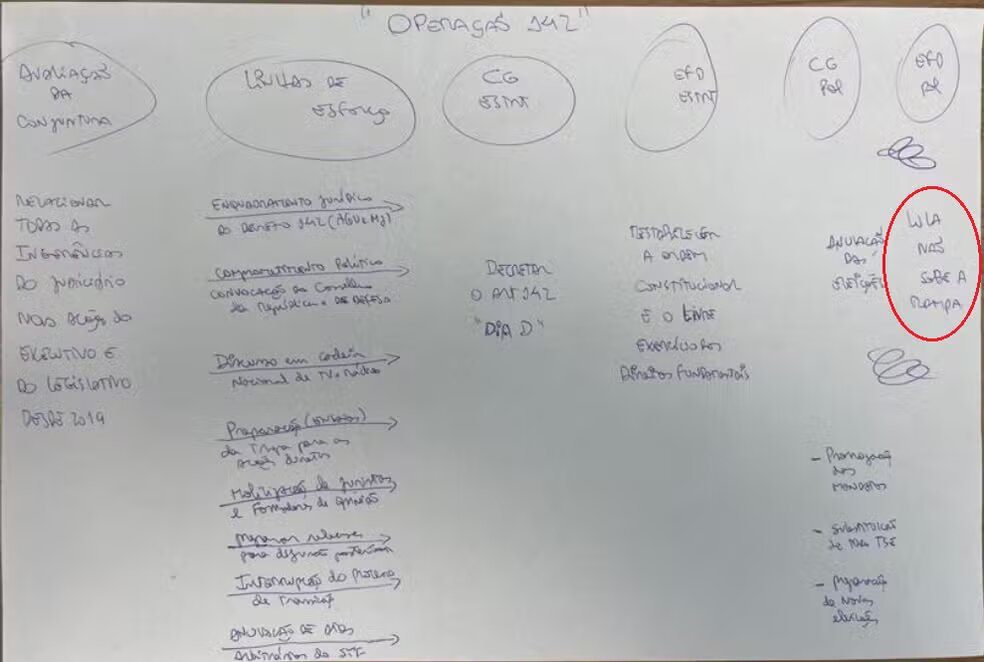 "OPERAÇÃO 142"
AVALIAÇÃO
DA
CONJUNTURA
LINHAS DE
ESFORÇO
CG
ESTRT
EFD
ESTRT
CG
POL
EFD
POL
RELACIONAR
TODAS AS
INTERFERÊNCIAS
DO JUDICIÁRIO
NAS AÇÕES DO
EXECUTIVO E
DO LEGISLATIVO
DESDE 2019
ENQUADRAMENTO JURÍDICO
DO DECRETO 142 (AGU e MJ)
Comprometimento Político
CONVOCAÇÃO do Conselho
da República e DE DEFESA
Discurso em cadeia
Nacional de TV e Rádio
Preparação
da Tropa para as
ações diretas
Mobilização de juristas
e Formadores de opinião
Preparar
para
Interrupção do Processo
de Transição
ANULAÇÃO DE ATOS
Arbitrários do STF
DECRETAR
O ART 142
"DIA D"
RESTABELECER
A ORDEM
CONSTITUCIONAL
E O LIVRE
EXERCÍCIO DOS
DIREITOS FUNDAMENTAIS
ANULAÇÃO
DAS
ELEIÇÕES
- Prorrogação
dos
MANDATOS
- SUBSTITUIÇÃO
de todo TSE
- Preparação
de Novas
eleições
LULA
NÃO
SOBE A
RAMPA